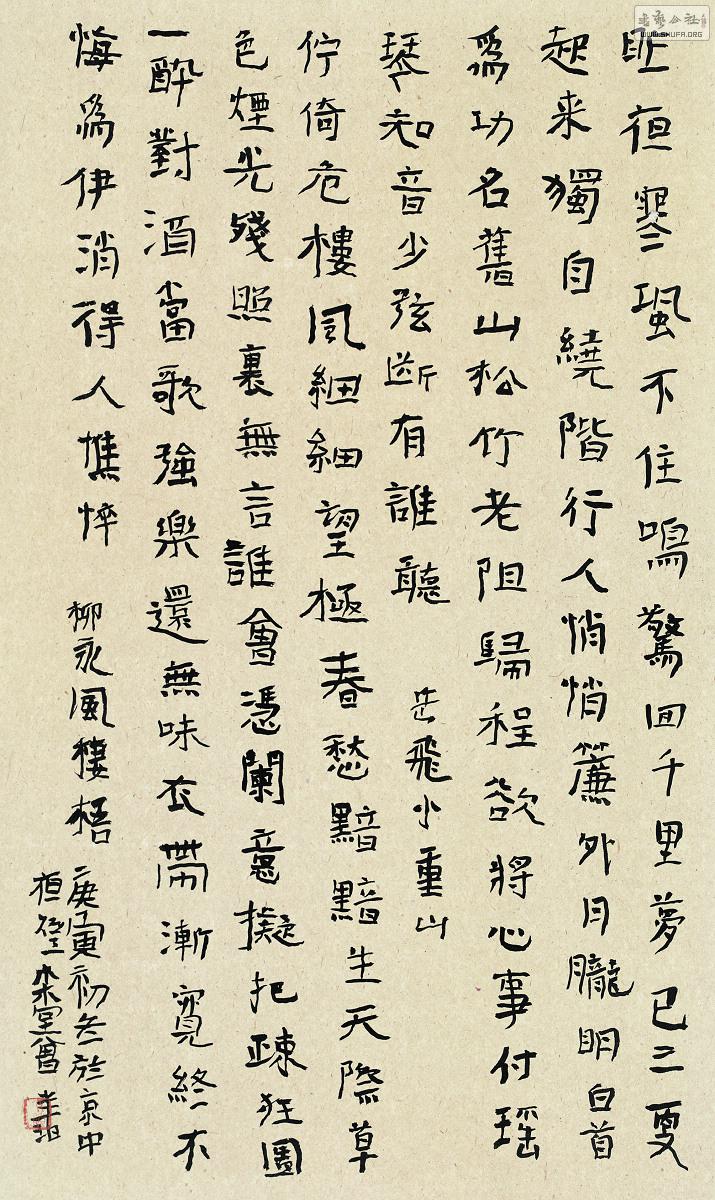 昨夜寒蛩不住鳴驚囬千里夢已三更
起来獨自繞階行人悄悄簾外月朧明白首
爲功名舊山松竹老阻歸程欲將心事付瑶
琴知音少弦斷有誰聽 岳飛小重山
佇倚危樓風細細望極春愁黯黯生天際草
色煙光殘照裏無言誰會憑闌意擬把疎狂圖
一醉對酒當歌強樂還無味衣帶漸寬終不
悔爲伊消得人憔悴 柳永風棲梧
庚寅初冬於京中
堂曾
書藝公社
WWW.SHUFA.ORG